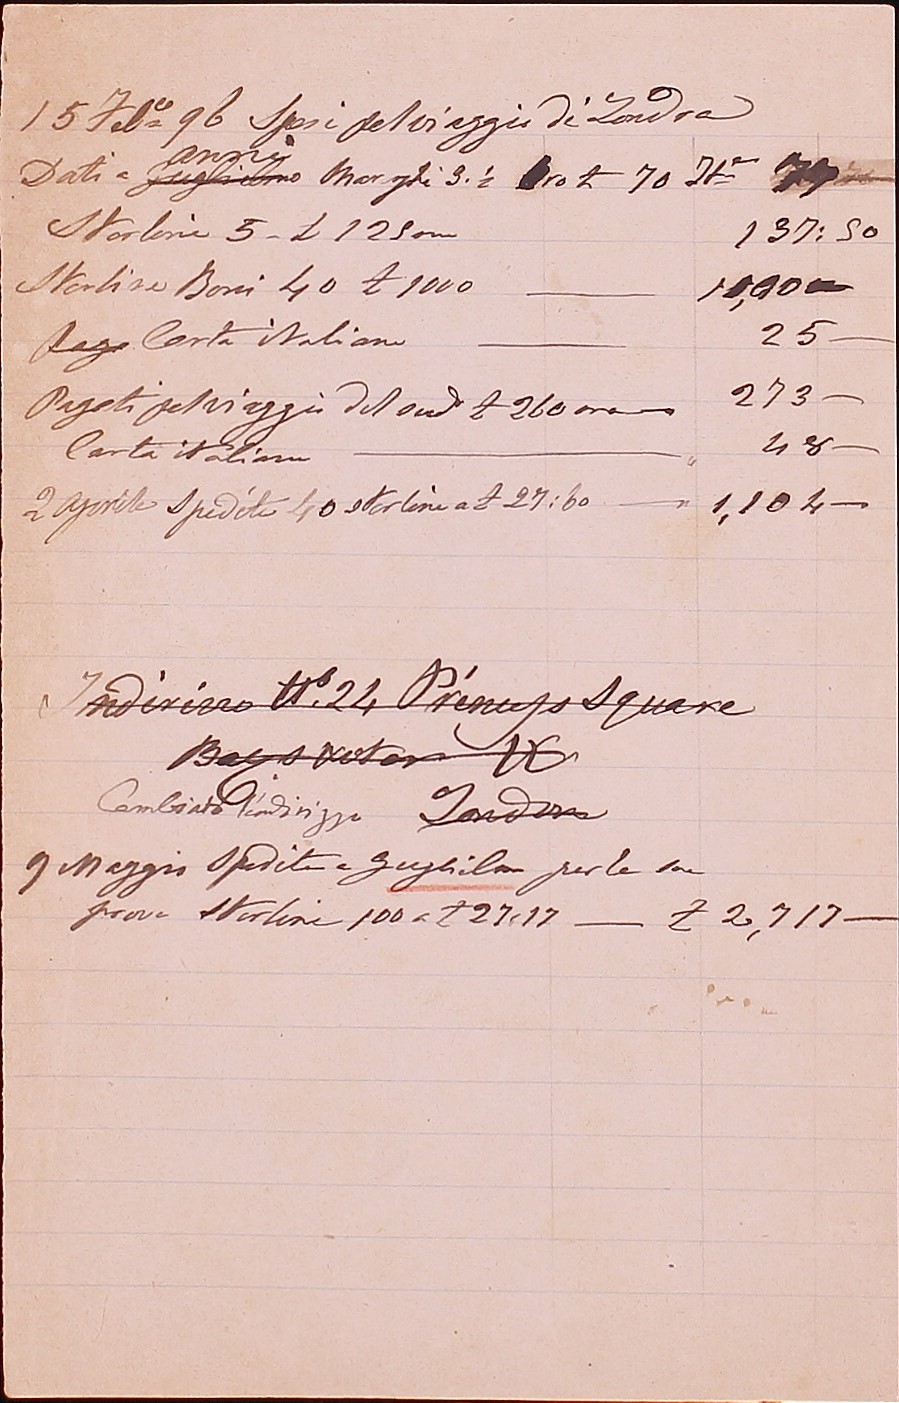 15 Febº 96 Spesi pel viaggio di Londra
Dati a Guglielmo anni Marenghi 3.½ oro £ 70 It
Sterline 5 - £ 125 oro 137:50
Sterline Boni 40 £ 1000
Pago Carta italiana 25
Pagati pel viaggio del sudº £ 260 oro 273
Carta italiana " 48
2 Aprile Spedite 40 sterline a £ 27:60 " 1,104
Indirizzo Nº. 24 Princeps Square
Bayswater W
Cambiato l'indirizzo London
9 Maggio Spedite a Guglielmo per le sue
prove Sterline 100 a £ 27.17 £ 2,717